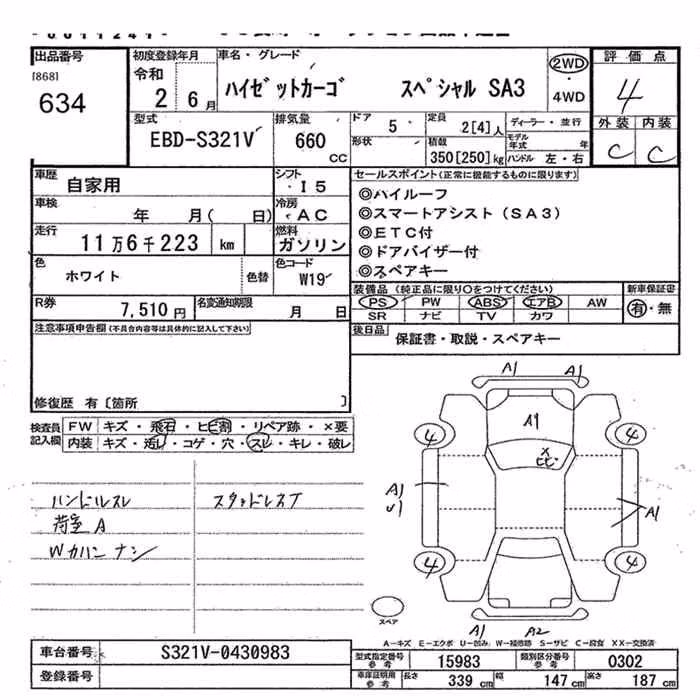 出品番号
[868]
634
初度登録年月
令和
2 6月
車名・グレード
ハイゼットカーゴ スペシャル SA3
2WD
4WD
評価点
4
外装 内装
C C
型式
EBD-S321V
排気量
660
CC
ドア
5
形状
定員
2[4]人
積載
350[250]kg
ディーラー・並行
モデル年式 年
ハンドル 左・右
車歴
自家用
シフト
I5
車検
年 月( 日)
冷房
AC
走行
11万6千223 km
燃料
ガソリン
色
ホワイト
色替
色コード
W19
R券
7,510円
名変通知期限
月 日
セールスポイント(正常に機能するものに限ります)
◎ハイルーフ
◎スマートアシスト(SA3)
◎ETC付
◎ドアバイザー付
◎スペアキー
装備品(純正品に限り〇をつけてください)
PS PW ABS エアB AW
SR ナビ TV カワ
新車保証書
有・無
後日品
保証書・取説・スペアキー
注意事項申告欄(不具合内容等は具体的に記入して下さい)
修復歴 有〔箇所 〕
検査員記入欄
FW キズ・飛石・ヒビ割・リペア跡・×要
内装 キズ・汚レ・コゲ・穴・スレ・キレ・破レ
ハンドルスレ
荷室A
Wカハンナシ
スタッドレスT
A1 A1
A9
×
ヒビ
4 4
A1
U1
A1
4 4
A1 A2
スペア
A-キズ E-エクボ U-凹み W-補修跡 S-サビ C-腐食 XX-交換済
車台番号
S321V-0430983
登録番号
型式指定番号
参考
15983
類別区分番号
参考
0302
車庫証明用
参考
長さ 339cm 幅 147cm 高さ 187cm